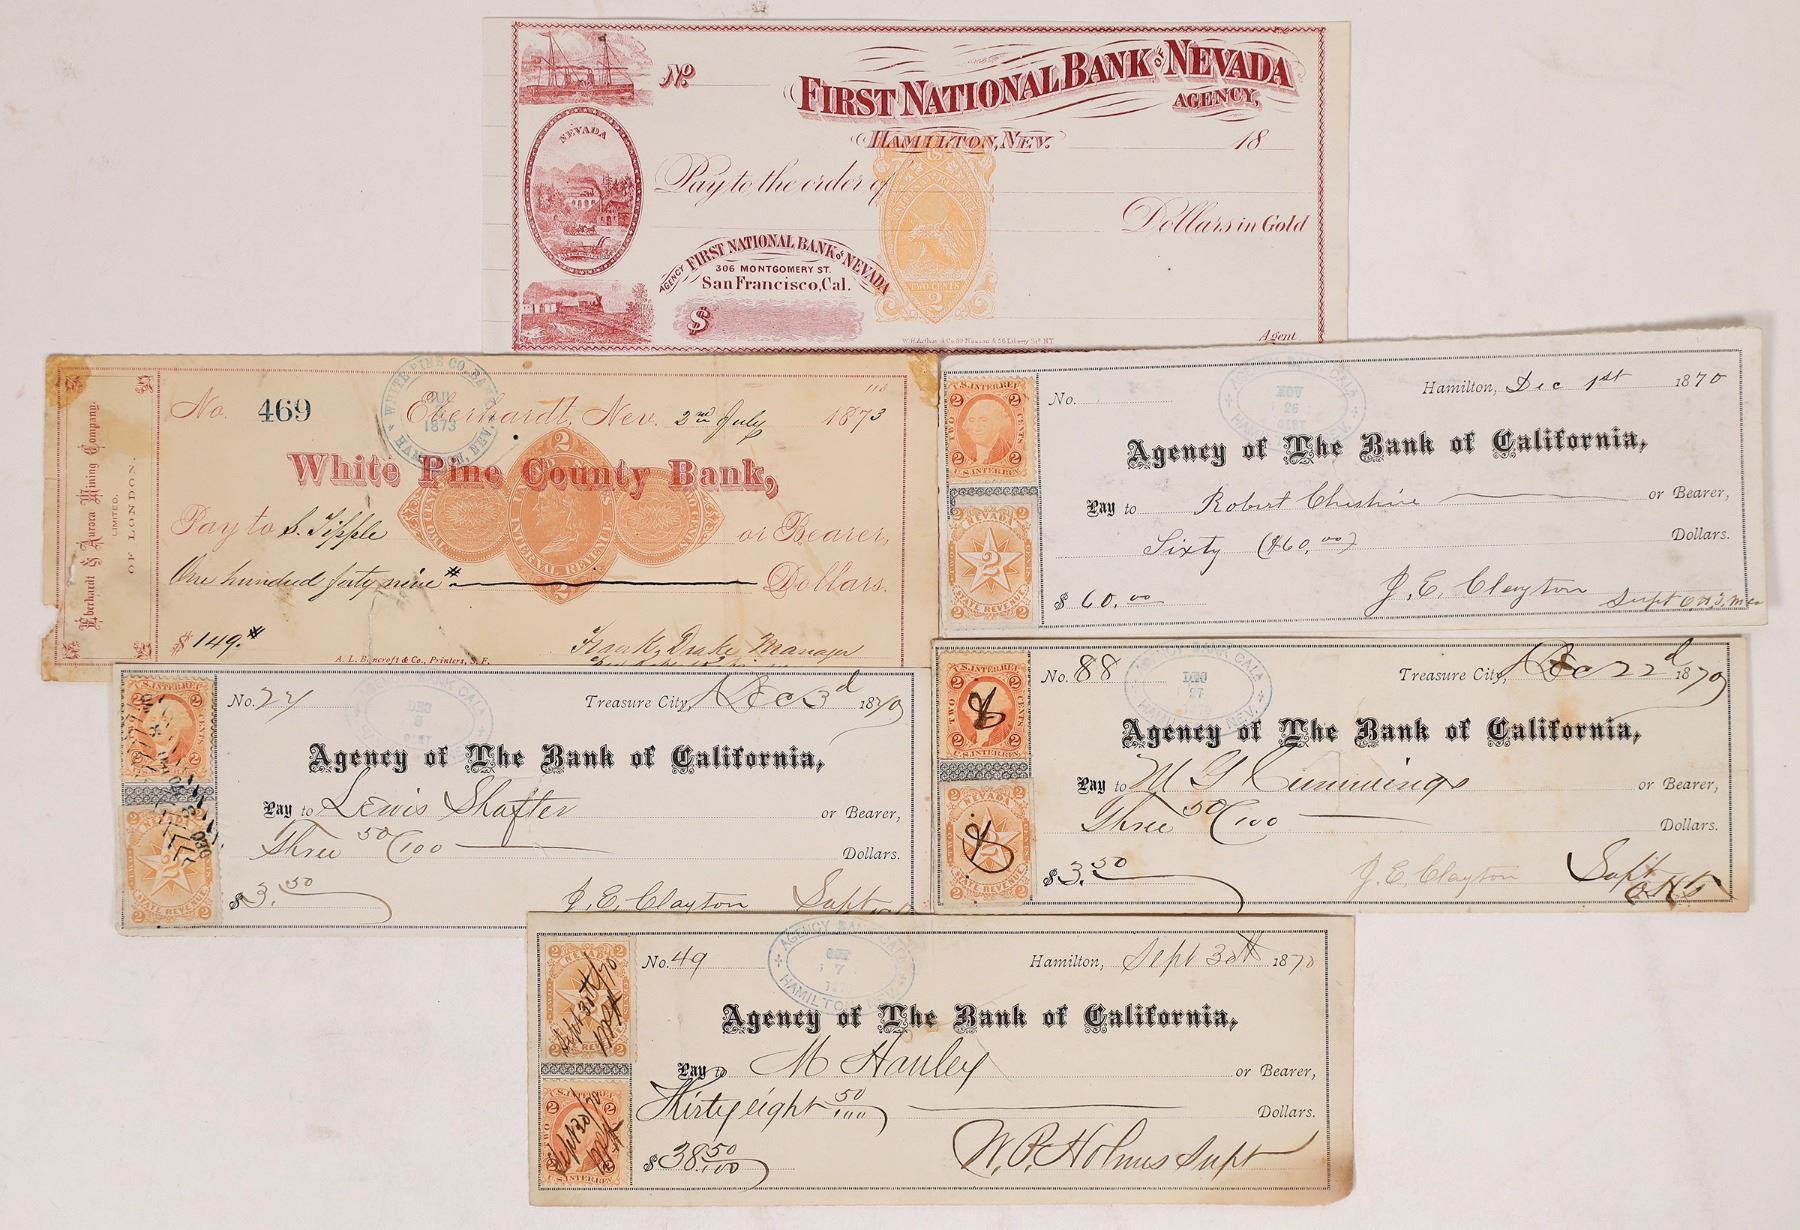 No.
FIRST NATIONAL BANK OF NEVADA
AGENCY,
HAMILTON, NEV. 18
NEVADA
Pay to the order of
Dollars in Gold
AGENCY FIRST NATIONAL BANK OF NEVADA
306 MONTGOMERY ST.
San Francisco, Cal.
TWO CENTS
2
$
Agent
Eberhardt & Aurora Mining Company.
LIMITED.
OF LONDON.
No. 469 Eberhardt, Nev. 2nd July 1873
WHITE PINE CO. BANK
JUL
1873
HAMILTON, NEV.
White Pine County Bank,
Pay to S. Tipple or Bearer,
One hundred forty nine Dollars.
INTERNAL REVENUE
$ 149.
Frank Drake Manager
A. L. Bancroft & Co., Printers, S. F.
U.S. INTER. REV.
2 2
TWO CENTS
U.S. INTER. REV.
NEVADA
2
STATE REVENUE
No. Hamilton, Dec 1st 1870
NOV
26
Agency of The Bank of California,
Pay to Robert Cheshire or Bearer,
Sixty ($60,00) Dollars.
$ 60.00 J. E. Clayton Supt
U.S. INTER. REV.
2
STATE REVENUE
No. 24 Treasure City, Dec 3d 1870
Agency of The Bank of California,
Pay to Lewis Shafter or Bearer,
Three 50/100 Dollars.
$ 3.50 J. E. Clayton Supt
U.S. INTER. REV.
2 2
TWO CENTS
U.S. INTER. REV.
NEVADA
STATE REVENUE
No. 88 Treasure City, Dec 22d 1870
AGENCY BANK CALA
DEC
27
HAMILTON NEV.
Agency of The Bank of California,
Pay to M G Cummings or Bearer,
Three 50/100 Dollars.
$ 3.50 J. E. Clayton Supt
NEVADA
2 2
U.S. INTER. REV.
2 2
Sept 30/70
U.S. INTER. REV.
No. 49 Hamilton, Sept 30th 1870
AGENCY BANK CALA
7
HAMILTON, NEV.
Agency of The Bank of California,
Pay to M Hanley or Bearer,
Thirty eight 50/100 Dollars.
$ 38.50/100 W. P. Holmes Supt